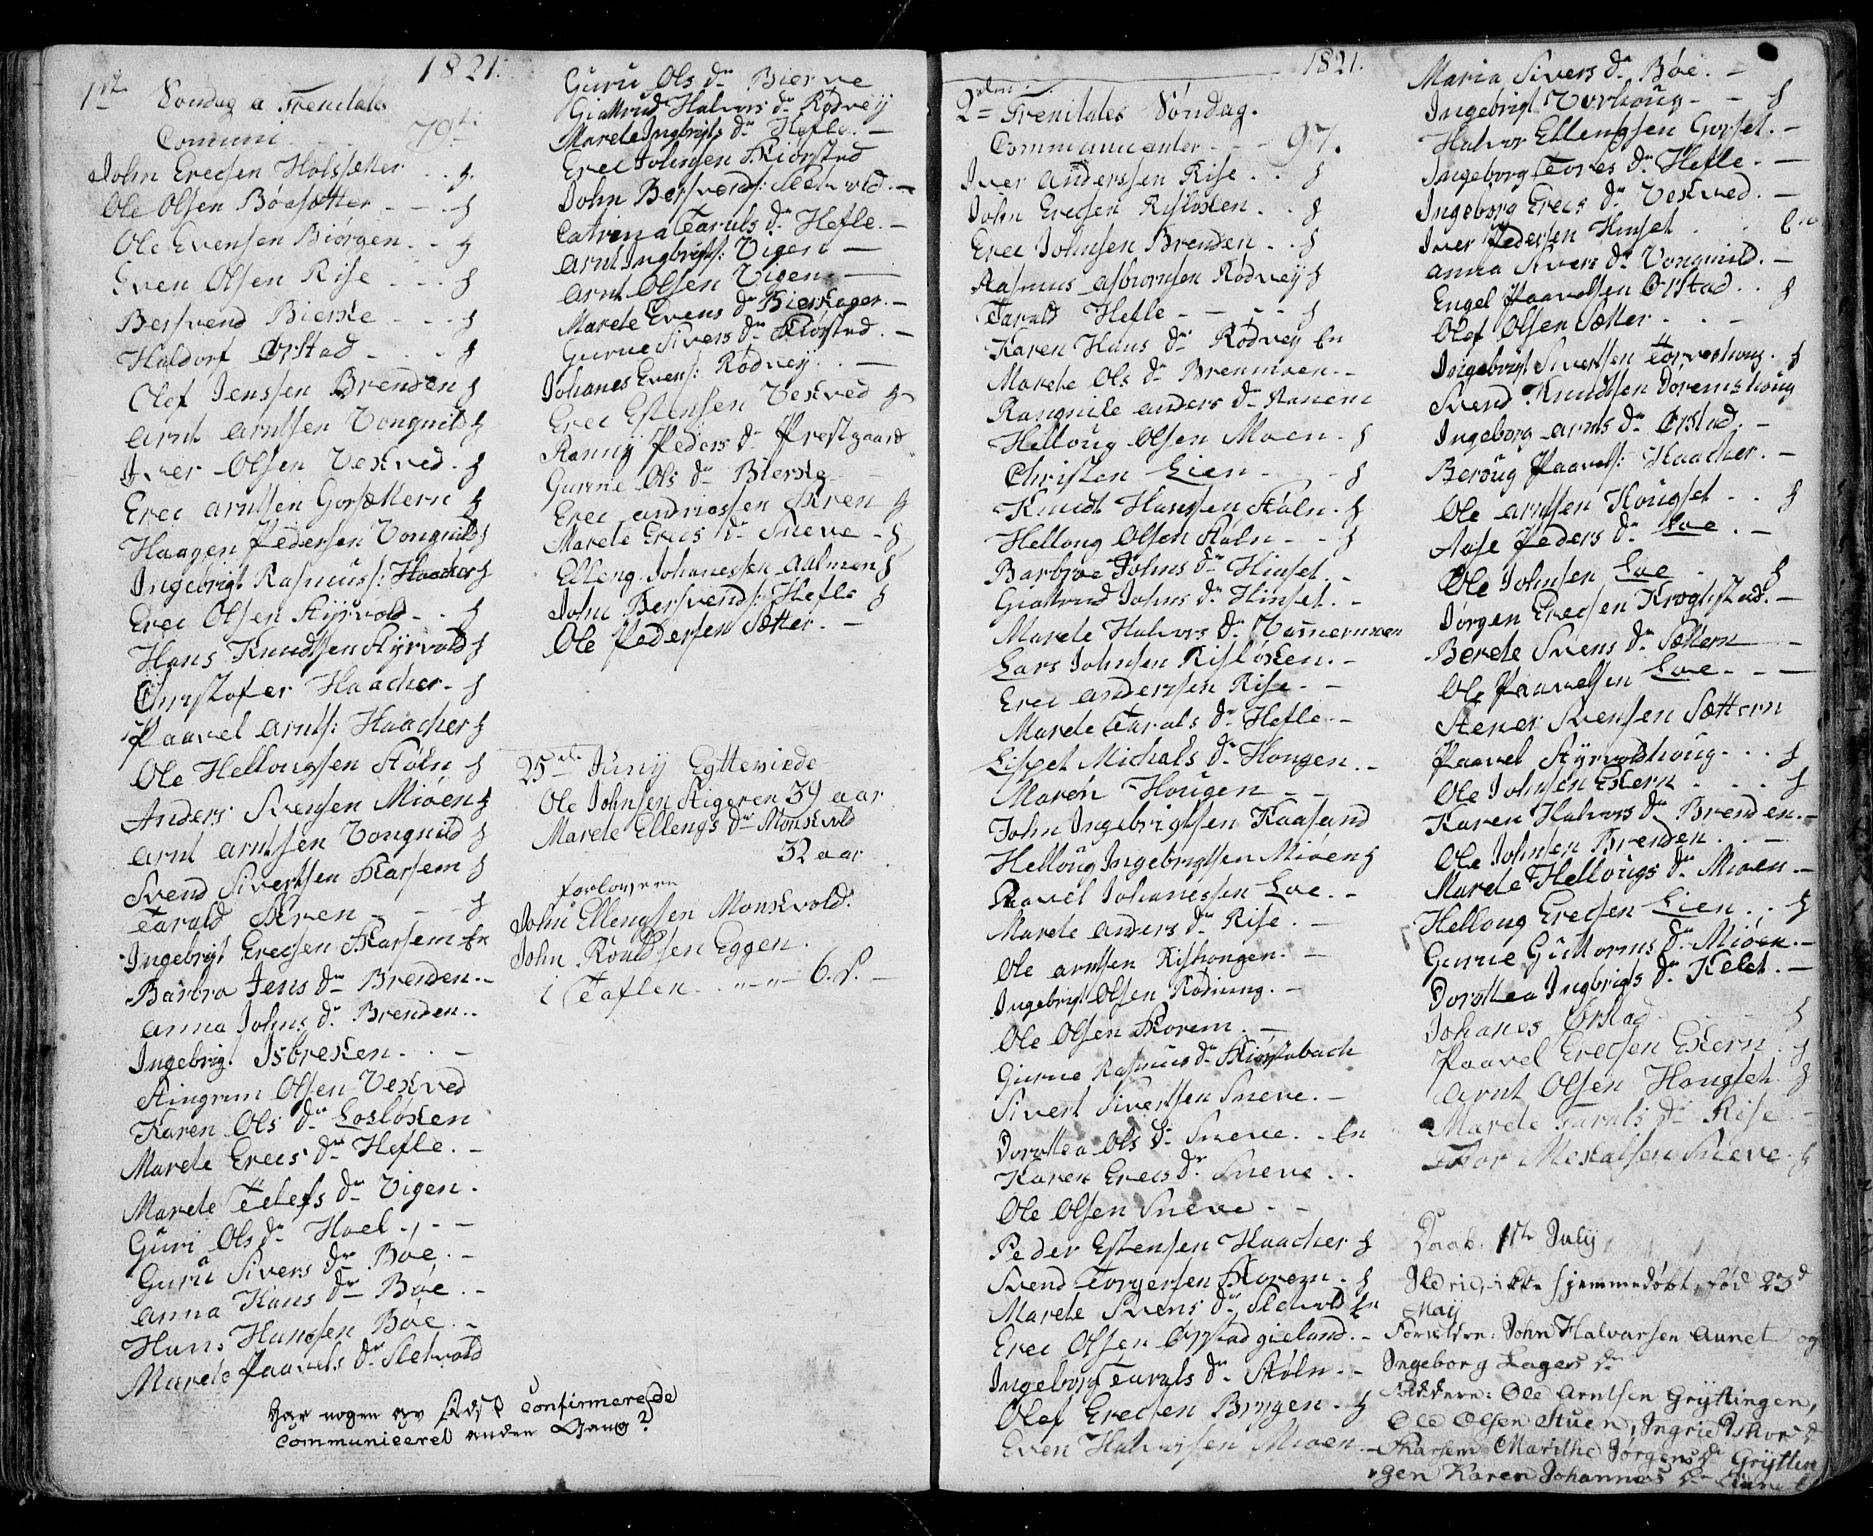 1821.
1ste Søndag a Trenitates
Comuni 79ti
John Erecsen Holssetter . . ȝ.
Ole Olsen Bøesøtter - - - ȝ
Ole Evensen Biørgen. - ȝ
Even Olsen Rise . . . ȝ
Bersvend Bierke - - - ȝ
Haldorf Ørstad - . . ȝ
Olef Jenssen Brenden ȝ
Arnt Arntsen Vongnild ȝ
Iver Olsen Vekved . ȝ
Erec Arntsen Gorsættern ȝ
Haagen Pedersen Vongnild ȝ
Ingebrigt Rasmuss: Haacker ȝ
Erec Olsen Styrvold . . ȝ
Hans Knudtsen Styrvold ȝ
Christofer Haacher - ȝ
Paavel Arnts: Haacher ȝ
Ole Hellougsen Støln ȝ
Anders Svensen Mioen ȝ
Arnt Arntsen Vongnild ȝ
Svend Sivertsen Skarsem ȝ
Tarald Skren - - - ȝ
Ingebrigt Erecsen Skarsem
Barbra Jens Dr Brenden . -
Anna Johns Dr Brenden . .
Ingebrig. Isbreken . . -
Stingrim Olsen Vekved
Karen Ols Dr Losløken
Marete Erecs Dr Hefle . -
Marete Telefs Dr Vigen .
Guri Ols Dr Hoel . , - -
Guru Sivers Dr Bøe . -
Anna Hans Dr Bøe . -
Hans Hansen Bøe . -
Marete Paavels Dr Sletvold
Har nogen av confirmerede
communiceret anden Gang?
Guru Ols Dr Bierke
Giattrud Halvors Dr Rødvey
Marete Ingbrigts Dr Hefle . -
Erec Johnsen Skiørstad
John Bersvends: Sletvold . -
Catrina Taruls Dr Hefle . -
Arnt Ingbrigts: Vigen -
Arnt Olsen Vigen -
Marete Evens Dr Bierkager . -
Gurue Sivers Dr Skiørstad . -
Johanes Evens: Rødvey . . -
Erec Estensen Vekved ȝ
Ranny Peders Dr Prestgaard
Gurue Ols Dr Bierke - -
Erec Andriassen Skren ȝ
Marete Erecs Dr Sneve - ȝ
Elleng Johanessen Aalmen ȝ
John Bersvends: Hefle ȝ
Ole Pedersen Sætter . -
25de Juny Egtteviede
Ole Johnsen Stigeren 39 aar
Marete Ellengs Dr Monskvold
32 aar
forlovere
John Ellengsen Monskvold.
John Roaldsen Eggen.
i Taflen . . - - - 6. S. -
1821.
2den Trenitates Søndag.
Communicanter - - 97.
Iver Anderssen Rise . . ȝ
John Erecsen Risløken . . ȝ
Erec Johnsen Brenden . . ȝ
Rasmus Asbiørnsen Rødvey ȝ
Tarald Hefle - - - - ȝ
Karen Hans Dr Rødvey
Marete Ols Dr Brenmoen . -
Rangnile Anders Dr
Helloug Olsen Moen . ȝ
Christen Lien - - ȝ
Knudt Hanssen Støln . ȝ
Helloug Olsen Støln - - ȝ
Barbroe Johns Dr Hinset . -
Giattrud Johns Dr Hinset . -
Marete Halvors Dr
Lars Johnsen Risløken . -
Erec Anderssen Rise . - -
Marete Taruls Dr Hefle . -
Lisbet Michals Dr Hougen . -
Maren Hougen - -
John Ingebrigtsen Kaasand
Helloug Ingebrigtsen Mioen ȝ
Paavel Johanessen Loe . -
Marete Anders Dr Rise . -
Ole Arntsen Rishougen . -
Ingebrigt Olsen Rødning . -
Ole Olsen Skorem . -
Gurue Rasmus Dr Skiørstabach
Sivert Sivertsen Sneve . -
Dorothea Ols Dr Sneve . -
Karen Erecs Dr Sneve . .
Ole Olsen Sneve . -
Peder Estensen Haacher ȝ
Svend Torgersen Skorem . ȝ
Marete Svens Dr Sletvold
Erec Olsen Ørstadgieland . -
Ingeborg Taruls Dr Støln . -
Olef Erecsen Brygen . ȝ
Even Halvorsen Mioen . -
Maria Sivers Dr Bøe . -
Ingebrigt Vorhoug - - ȝ
Halvor Ellengsen Gorset . -
Ingeborg Tores Dr Hefle . -
Ingeborg Erecs Dr Vekved . -
Iver Pedersen Hinset . .
Anna Sivers Dr Vongnild . -
Engel Paavelsen Ørstad . . ȝ
Olef Olsen Sætter . . -
Ingebrigt Sivertsen Torveshoug . ȝ
Svend Knudtsen Doremshoug
Ingeborg Arnts Dr Ørstad . -
Beroug Paavels: Haacher . -
Ole Arntsen Hougset . . ȝ
Aase Peders Dr Loe . -
Ole Johnsen Loe . ȝ
Jørgen Erecsen Krogstad . -
Berete Svens Dr Sættern -
Ole Paavelsen Loe - - -
Stener Svensen Sættern
Paavel Styrvoldshoug . . . ȝ
Ole Johnsen Ekern . . . ȝ
Karen Halvors Dr Brenden . -
Ole Johnsen Brenden . . -
Marete Hellougs Dr Mioen . -
Helloug Erecsen Lien . . ȝ
Gurue Guttorms Dr Mioen . -
Dorothea Ingbrigts Dr Kelet . -
Johanes Ørstad . - - ȝ
Paavel Erecsen Ekern . ȝ
Arnt Olsen Hougset . ȝ
Marete Taruls Dr Rise . -
Tor Mekalsen Sneve . ȝ
Daab. 1ste July
Ildrid, ikke hjemmedøbt, fød 23d
May
Foreldre: John Halvarsen Aunet og
Ingeborg Lagers Dr
Faddere: Ole Arntsen Gryttingen,
Ole Olsen Stuen, Ingrid Tshors D
Skarsem Marithe Jørgens Dr Gryttin
gen Karen Johannes Dr Aunet